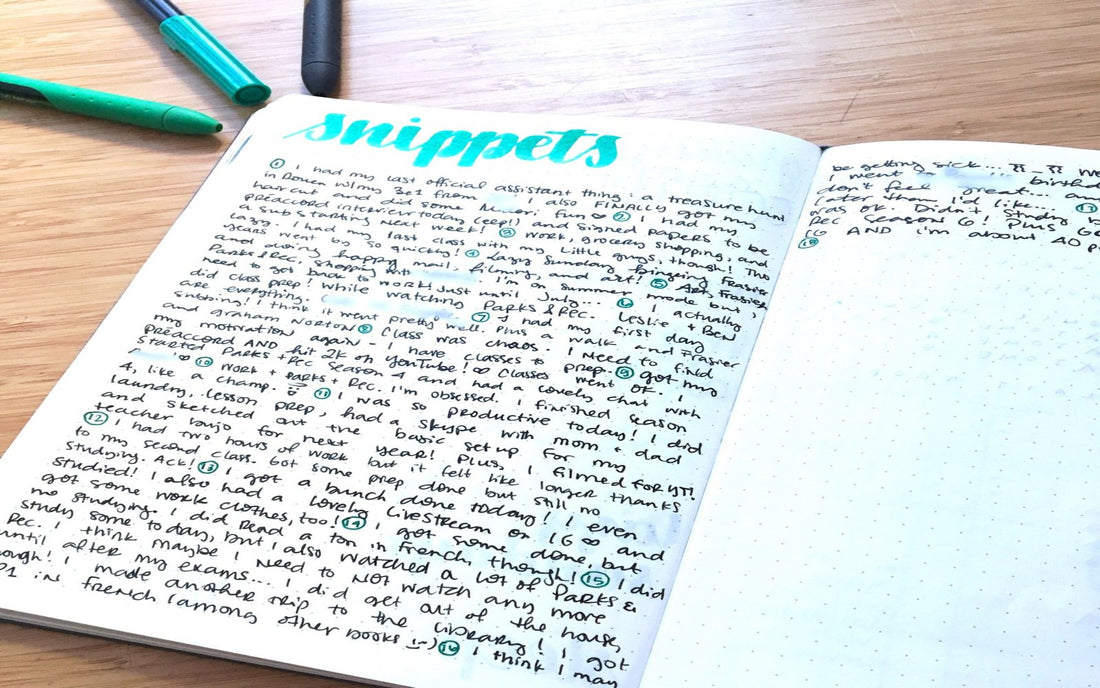 snippets
① I had my last official assistant thing: a treasure hunt
in Rouen w/ my 3e1 from I also FINALLY got my
haircut and did some fun ∞ ② I had my
PREACCORD interview today (eep!) and signed papers to be
a sub starting next week! ③ Work, grocery shopping, and
lazy. I had my last class with my little guys, though! Two
years went by so quickly! ④ Lazy Sunday bingeing Frasier
and doing happy mail, filming, and art! ⑤ Art, Frasier,
Parks & Rec. Shopping with I'm on summer mode but I
need to get back to work! Just until July... ⑥ I actually
did class prep! While watching Parks & Rec. Leslie + Ben
are everything. ( ⑦ I had my first day
subbing! I think it went pretty well. Plus a walk and Frasier
and Graham Norton ⑧ Class was chaos. I need to find
my motivation again - I have classes to prep. ⑨ Got my
PREACCORD AND hit 2K on YouTube! ∞ Classes went OK. I
started Parks + Rec season 4 and had a lovely chat with
∞ ⑩ Work + Parks + Rec. I'm obsessed. I finished season
4, like a champ. ⑪ I was so productive today! I did
laundry, lesson prep, had a skype with mom + dad
and sketched out the basic set up for my
teacher bujo for next year! Plus, I filmed for YT!
⑫ I had two hours of work but it felt like longer thanks
to my second class. Got some prep done but still no
studying. Ack! ⑬ I got a bunch done today! I even
studied! I also had a lovely livestream on IG ∞ and
got some work clothes, too! ⑭ I got some done, but
no studying. I did read a ton in French, though! ⑮ I did
study some today, but I also watched a lot of Parks &
Rec. I think maybe I need to NOT watch any more
until after my exams... I did get out of the house,
though! I made another trip to the library! I got
in French (among other books :-) ⑯ I think I may
be getting sick... We
I went birthd
don't feel great...
later than I'd like... ⑰
was ok. Didn't study
Rec season 6! Plus
IG AND I'm about 40 p
⑱